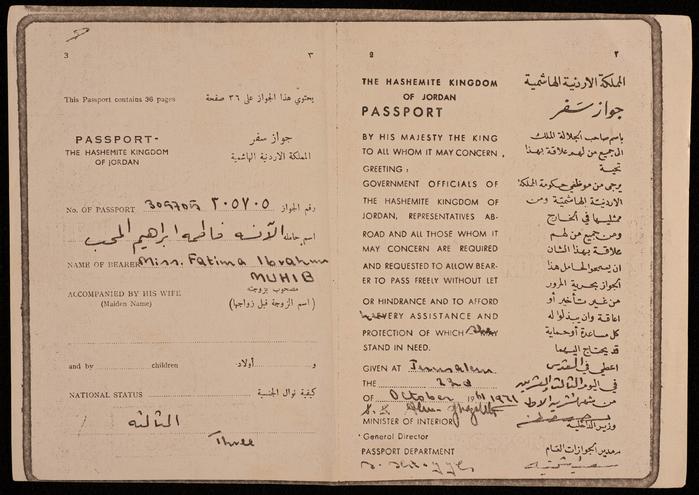 3
٣
This Passport contains 36 pages
يحتوي هذا الجواز على ٣٦ صفحة
PASSPORT-
THE HASHEMITE KINGDOM
OF JORDAN
جواز سفر
المملكة الاردنية الهاشمية
No. OF PASSPORT
رقم الجواز
اسم حامله الآنسه فاطمه ابراهيم المحب
NAME OF BEARER Miss. Fatima Ibrahim
MUHIB
ACCOMPANIED BY HIS WIFE
(Maiden Name)
مصحوب بزوجته
(اسم الزوجة قبل زواجها)
and by children
و اولاد
NATIONAL STATUS
كيفية نوال الجنسية
الثالثه
Three
2
٢
THE HASHEMITE KINGDOM
OF JORDAN
PASSPORT
BY HIS MAJESTY THE KING
TO ALL WHOM IT MAY CONCERN,
GREETING:
GOVERNMENT OFFICIALS OF
THE HASHEMITE KINGDOM OF
JORDAN, REPRESENTATIVES AB-
ROAD AND ALL THOSE WHOM IT
MAY CONCERN ARE REQUIRED
AND REQUESTED TO ALLOW BEAR-
ER TO PASS FREELY WITHOUT LET
OR HINDRANCE AND TO AFFORD
EVERY ASSISTANCE AND
PROTECTION OF WHICH
STAND IN NEED.
GIVEN AT Jerusalem
THE 23rd
OF October
MINISTER OF INTERIOR
General Director
PASSPORT DEPARTMENT
المملكة الاردنية الهاشمية
جواز سفر
باسم صاحب الجلالة الملك
الى جميع من لهم علاقة بهذا
تحية
يرجى من موظفي حكومة المملكة
الاردنية الهاشمية ومن
ممثليها في الخارج
ومن جميع من لهم
علاقة بهذا الشان
ان يسمحوا لحامل هذا
الجواز بحرية المرور
من غير تأخير أو
اعاقة وان يبذلوا له
كل مساعدة أو حماية
قد يحتاج اليهما
اعطي في القدس
في اليوم الثالث والعشرين
من شهر تشرين الاول
وزير الداخلية
مدير الجوازات العام